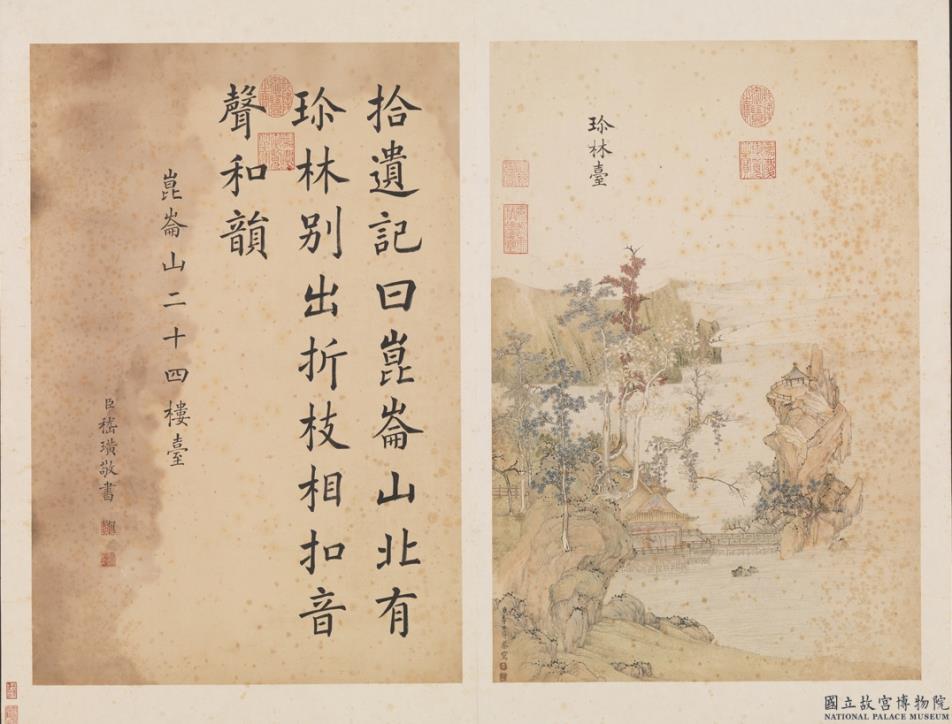 珎林臺
拾遺記曰崑崙山北有
珎林别出折枝相扣音
聲和韻
崑崙山二十四樓臺
臣嵇璜敬書
國立故宮博物院
NATIONAL PALACE MUSEUM